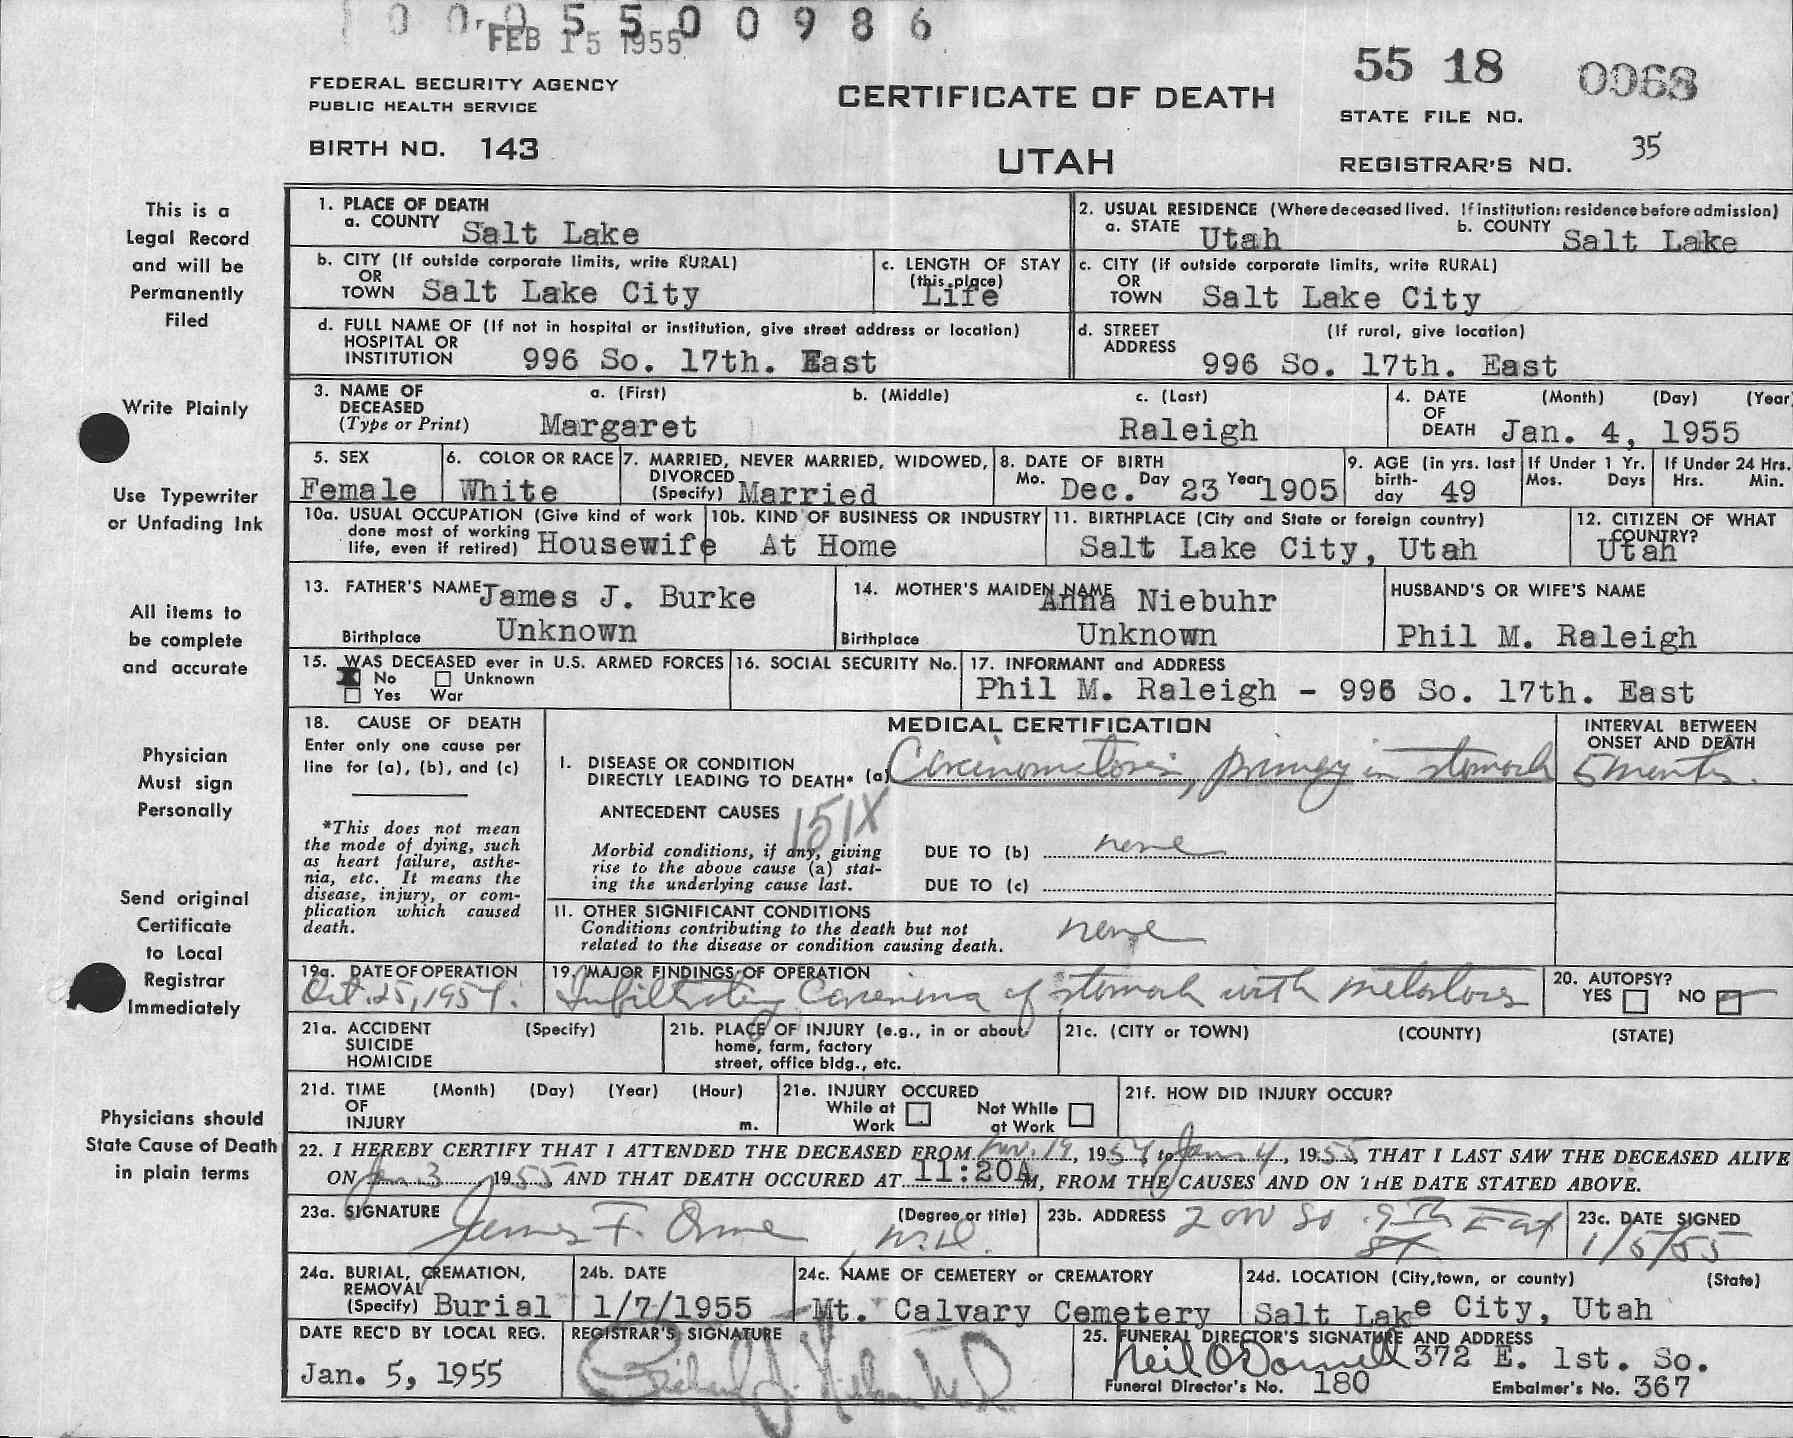 0 0 0 5 5 0 0 9 8 6
FEB 15 1955
55 18 0968
FEDERAL SECURITY AGENCY
PUBLIC HEALTH SERVICE
CERTIFICATE OF DEATH
STATE FILE NO.
BIRTH NO. 143
UTAH
REGISTRAR'S NO. 35
This is a
Legal Record
and will be
Permanently
Filed
Write Plainly
Use Typewriter
or Unfading Ink
All items to
be complete
and accurate
Physician
Must sign
Personally
Send original
Certificate
to Local
Registrar
Immediately
Physicians should
State Cause of Death
in plain terms
1. PLACE OF DEATH
a. COUNTY Salt Lake
2. USUAL RESIDENCE (Where deceased lived. If institution: residence before admission)
a. STATE Utah b. COUNTY Salt Lake
b. CITY (If outside corporate limits, write RURAL)
OR
TOWN Salt Lake City
c. LENGTH OF STAY
(this place)
Life
c. CITY (If outside corporate limits, write RURAL)
OR
TOWN Salt Lake City
d. FULL NAME OF (If not in hospital or institution, give street address or location)
HOSPITAL OR
INSTITUTION 996 So. 17th. East
d. STREET (If rural, give location)
ADDRESS
996 So. 17th. East
3. NAME OF a. (First) b. (Middle) c. (Last)
DECEASED
(Type or Print) Margaret Raleigh
4. DATE (Month) (Day) (Year
OF
DEATH Jan. 4, 1955
5. SEX
Female
6. COLOR OR RACE
White
7. MARRIED, NEVER MARRIED, WIDOWED,
DIVORCED
(Specify) Married
8. DATE OF BIRTH
Mo. Dec. Day 23 Year 1905
9. AGE (in yrs. last
birth-
day 49
If Under 1 Yr.
Mos. Days
If Under 24 Hrs.
Hrs. Min.
10a. USUAL OCCUPATION (Give kind of work
done most of working
life, even if retired) Housewife
10b. KIND OF BUSINESS OR INDUSTRY
At Home
11. BIRTHPLACE (City and State or foreign country)
Salt Lake City, Utah
12. CITIZEN OF WHAT
COUNTRY?
Utah
13. FATHER'S NAME James J. Burke
Birthplace Unknown
14. MOTHER'S MAIDEN NAME Anna Niebuhr
Birthplace Unknown
HUSBAND'S OR WIFE'S NAME
Phil M. Raleigh
15. WAS DECEASED ever in U.S. ARMED FORCES
No Unknown
Yes War
16. SOCIAL SECURITY No.
17. INFORMANT and ADDRESS
Phil M. Raleigh - 996 So. 17th. East
18. CAUSE OF DEATH
Enter only one cause per
line for (a), (b), and (c)
*This does not mean
the mode of dying, such
as heart failure, asthe-
nia, etc. It means the
disease, injury, or com-
plication which caused
death.
MEDICAL CERTIFICATION
INTERVAL BETWEEN
ONSET AND DEATH
I. DISEASE OR CONDITION
DIRECTLY LEADING TO DEATH* (a) Carcinomatosis, primary in stomach 5 months.
ANTECEDENT CAUSES 151X
Morbid conditions, if any, giving
rise to the above cause (a) stat-
ing the underlying cause last.
DUE TO (b) none
DUE TO (c)
II. OTHER SIGNIFICANT CONDITIONS
Conditions contributing to the death but not
related to the disease or condition causing death.
none
19a. DATE OF OPERATION
Oct. 25, 1954.
19. MAJOR FINDINGS OF OPERATION
Infiltrating Carcinoma of stomach with metastases
20. AUTOPSY?
YES NO
21a. ACCIDENT (Specify)
SUICIDE
HOMICIDE
21b. PLACE OF INJURY (e.g., in or about
home, farm, factory
street, office bldg., etc.
21c. (CITY or TOWN) (COUNTY) (STATE)
21d. TIME (Month) (Day) (Year) (Hour)
OF
INJURY m.
21e. INJURY OCCURED
While at Not While
Work at Work
21f. HOW DID INJURY OCCUR?
22. I HEREBY CERTIFY THAT I ATTENDED THE DECEASED FROM Nov. 19, 1954, to Jan 4, 1955, THAT I LAST SAW THE DECEASED ALIVE
ON Jan 3 1955 AND THAT DEATH OCCURED AT 11:20A M, FROM THE CAUSES AND ON THE DATE STATED ABOVE.
23a. SIGNATURE (Degree or title)
James F. Orme M.D.
23b. ADDRESS 2000 So 9th East
St
23c. DATE SIGNED
1/5/55
24a. BURIAL, CREMATION,
REMOVAL
(Specify) Burial
24b. DATE
1/7/1955
24c. NAME OF CEMETERY or CREMATORY
Mt. Calvary Cemetery
24d. LOCATION (City, town, or county) (State)
Salt Lake City, Utah
DATE REC'D BY LOCAL REG.
Jan. 5, 1955
REGISTRAR'S SIGNATURE
M.D.
25. FUNERAL DIRECTOR'S SIGNATURE AND ADDRESS
Neil O'Donnell 372 E. 1st. So.
Funeral Director's No. 180 Embalmer's No. 367